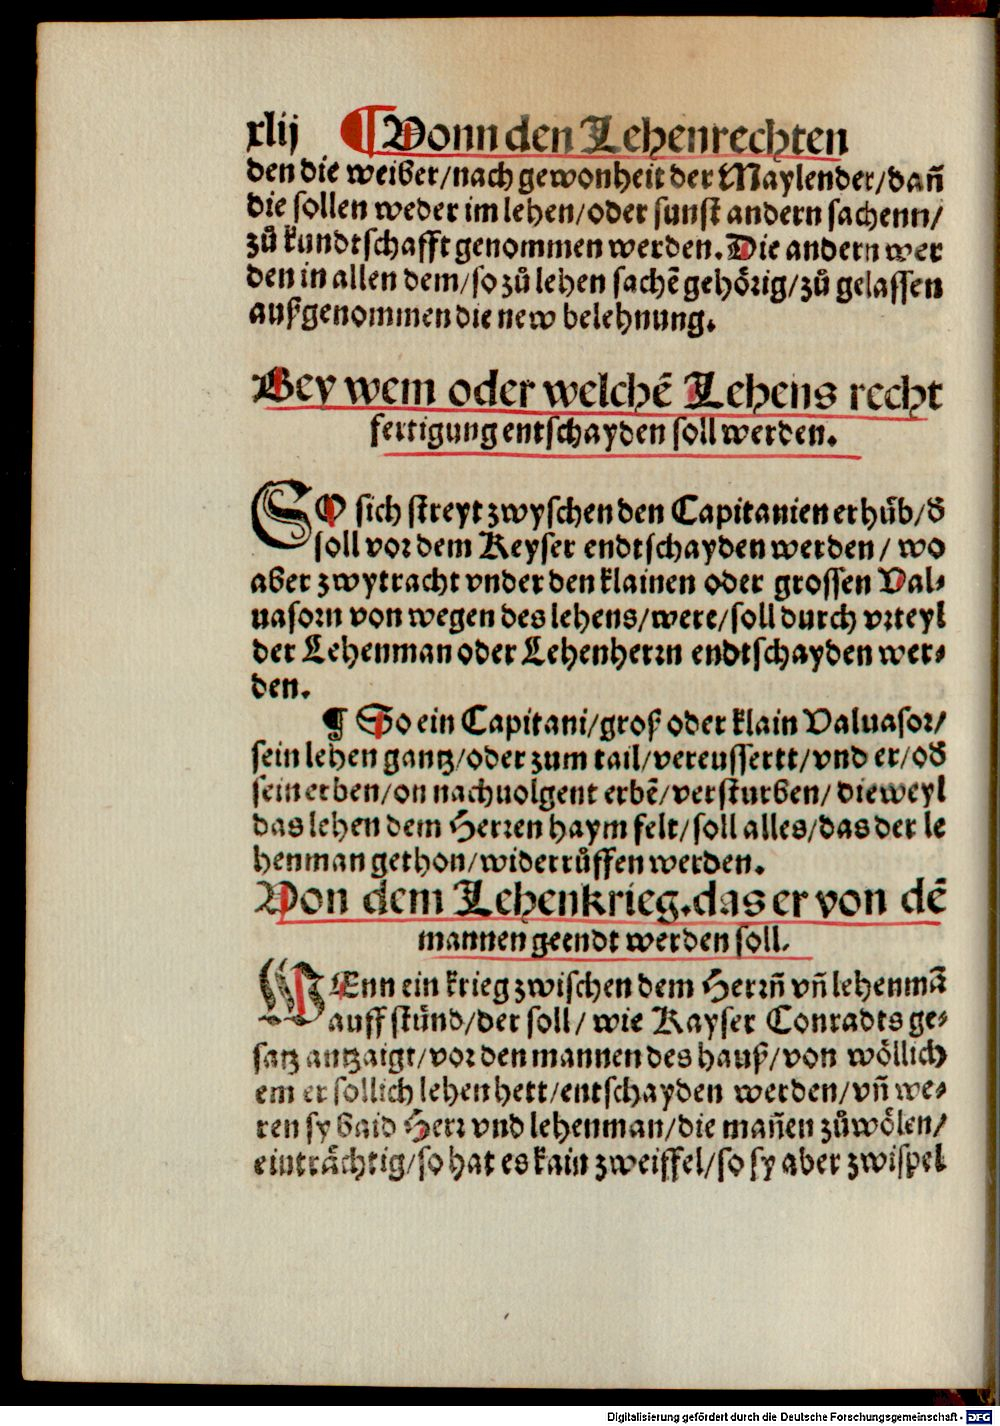 xlij ¶ Vonn den Lehenrechten
den die weiber/nach gewonheit der Maylender/dañ
die sollen weder im lehen/oder sunst andern sachenn/
zů kundtschafft genommen werden. Die andern wer
den in allen dem/so zů lehen sachē gehörig/zů gelassen
außgenommen die new belehnung.
Bey wem oder welchē Lehens recht
fertigung entschayden soll werden.
SO sich streyt zwyschen den Capitanien erhůb/d̕
soll vor dem Keyser endtschayden werden/ wo
aber zwytracht vnder den klainen oder grossen Val⸗
uasorn von wegen des lehens/were/soll durch vrteyl
der Lehenman oder Lehenherrn endtschayden wer⸗
den.
¶ So ein Capitani/groß oder klain Valuasor/
sein lehen gantz/oder zum tail/vereussertt/vnd er/od̕
sein erben/on nachuolgent erbē/versturben/ dieweyl
das lehen dem Herren haym felt/soll alles/das der le
henman gethon/widerrůffen werden.
Von dem Lehenkrieg.das er von dē
mannen geendt werden soll.
WEnn ein krieg zwischen dem Herrñ vñ lehenmā
auff stünd/der soll/ wie Kayser Conradts ge⸗
satz antzaigt/vor den mannen des hauß/von wöllich
em er sollich lehen hett/entschayden werden/vñ we⸗
ren sy baid Herr vnd lehenman/die mañen zůwölen/
einträchtig/so hat es kain zweiffel/so sy aber zwispel
Digitalisierung gefördert durch die Deutsche Forschungsgemeinschaft - DFG